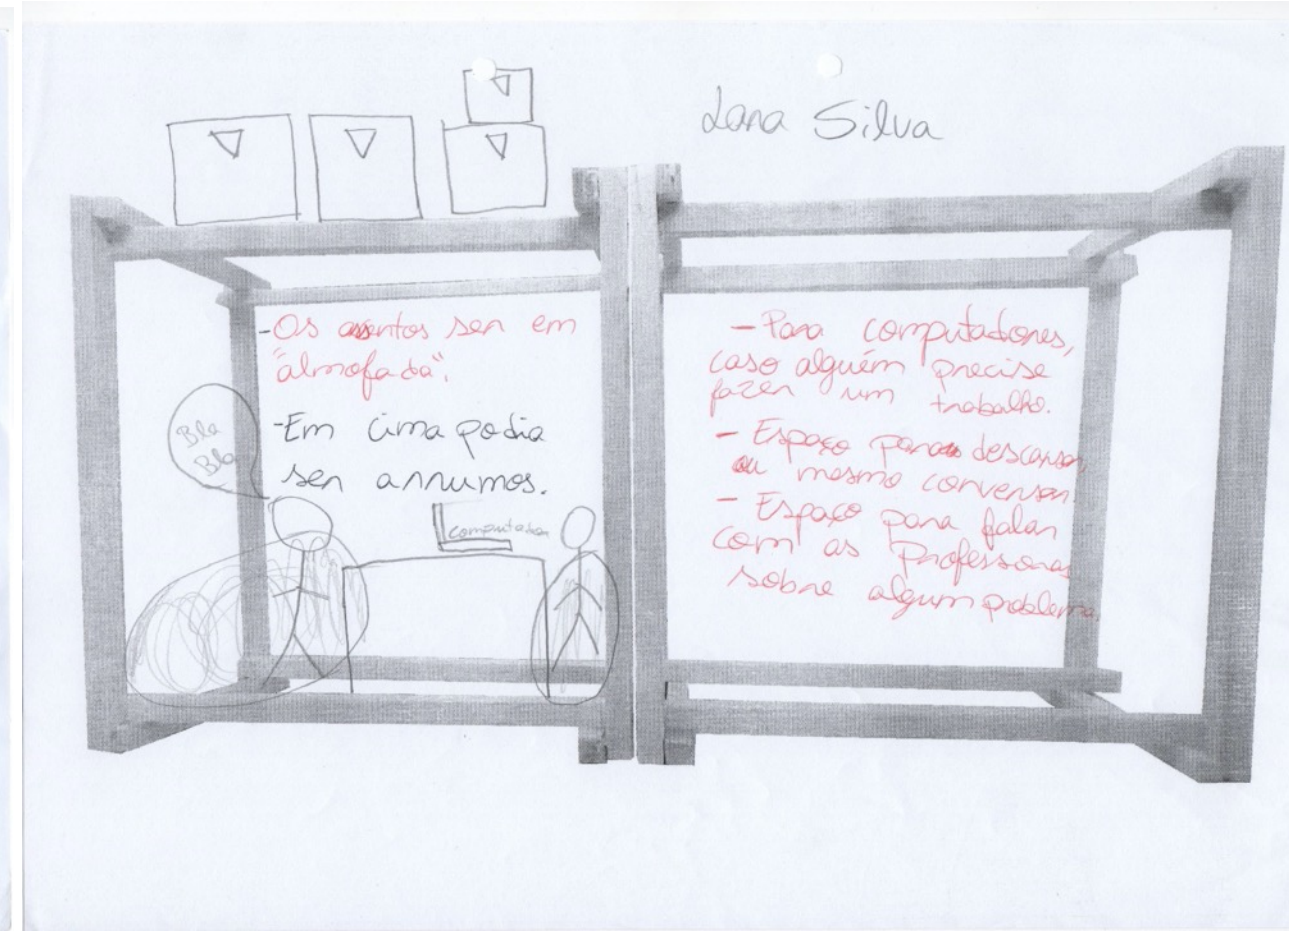 Lana Silva
-Os assentos ser em
"almofada".
-Em cima podia
ser arrumos.
Bla
Bla
computador
- Para computadores,
caso alguém precise
fazer um trabalho.
- Espaço para descansar
ou mesmo conversar
- Espaço para falar
com as Professoras
sobre algum problema.